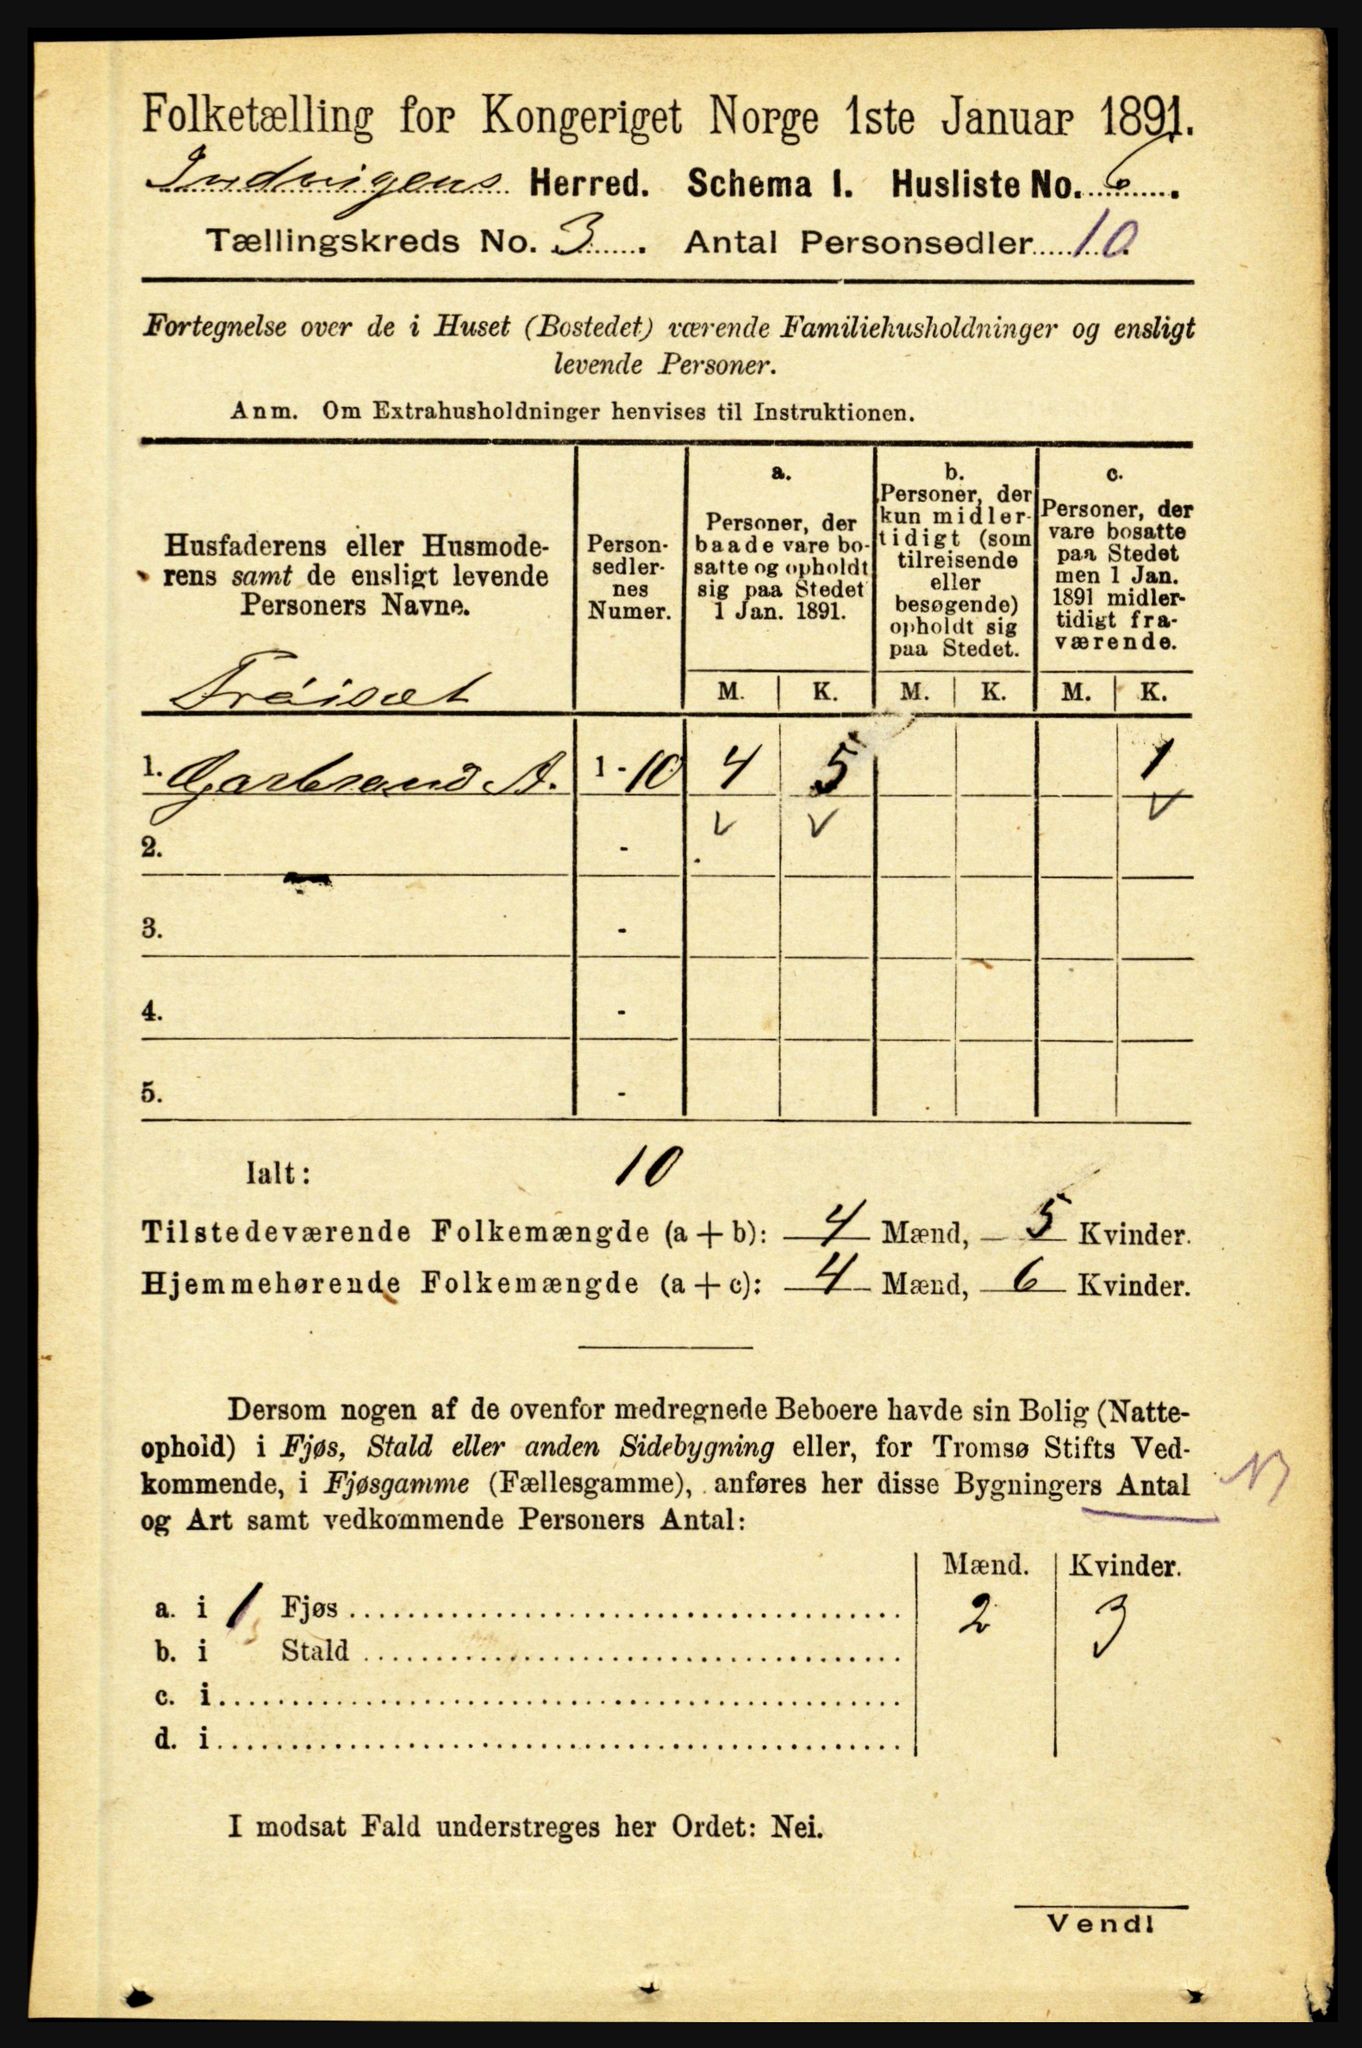 Folketælling for Kongeriget Norge 1ste Januar 1891.
Indvigens Herred. Schema I. Husliste No. 6.
Tællingskreds No. 3. Antal Personsedler 10
Fortegnelse over de i Huset (Bostedet) værende Familiehusholdninger og ensligt
levende Personer.
Anm. Om Extrahusholdninger henvises til Instruktionen.
Husfaderens eller Husmode-
rens samt de ensligt levende
Personers Navne.
Person-
sedler-
nes
Numer.
a.
Personer, der
baade vare bo-
satte og opholdt
sig paa Stedet
1 Jan. 1891.
b.
Personer, der
kun midler-
tidigt (som
tilreisende
eller
besøgende)
opholdt sig
paa Stedet.
c.
Personer, der
vare bosatte
paa Stedet
men 1 Jan.
1891 midler-
tidigt fra-
værende.
Trøisæt
M. K. M. K. M. K.
1. Garbrand A. 1 - 10 4 5 1
2. -
3. -
4. -
5. -
Ialt: 10
Tilstedeværende Folkemængde (a + b): 4 Mænd, 5 Kvinder.
Hjemmehørende Folkemængde (a + c): 4 Mænd, 6 Kvinder.
Dersom nogen af de ovenfor medregnede Beboere havde sin Bolig (Natte-
ophold) i Fjøs, Stald eller anden Sidebygning eller, for Tromsø Stifts Ved-
kommende, i Fjøsgamme (Fællesgamme), anføres her disse Bygningers Antal
og Art samt vedkommende Personers Antal:
NB
Mænd. Kvinder.
a. i 1 Fjøs 2 3
b. i Stald
c. i
d. i
I modsat Fald understreges her Ordet: Nei.
Vend!